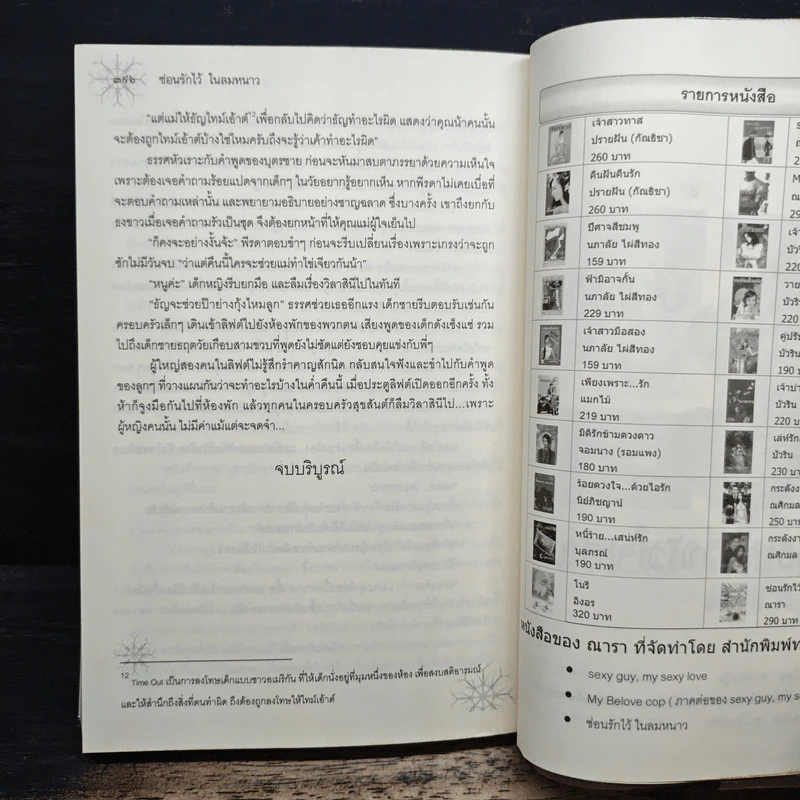 ๓๙๖ ซ่อนรักไว้ ในลมหนาว
"แต่แม่ให้ธัญไทม์เอ้าต์12เพื่อกลับไปคิดว่าธัญทำอะไรผิด แสดงว่าคุณน้าคนนั้น
จะต้องถูกไทม์เอ้าต์บ้างใช่ไหมครับถึงจะรู้ว่าเค้าทำอะไรผิด"
ธรรศหัวเราะกับคำพูดของบุตรชาย ก่อนจะหันมาสบตาภรรยาด้วยความเห็นใจ
เพราะต้องเจอคำถามร้อยแปดจากเด็กๆ ในวัยอยากรู้อยากเห็น หากพีรดาไม่เคยเบื่อที่
จะตอบคำถามเหล่านั้น และพยายามอธิบายอย่างชาญฉลาด ซึ่งบางครั้ง เขาถึงยกกับ
ธงขาวเมื่อเจอคำถามรัวเป็นชุด จึงต้องยกหน้าที่ให้คุณแม่ผู้ใจเย็นไป
"ก็คงจะอย่างงั้นจ้ะ" พีรดาตอบขำๆ ก่อนจะรีบเปลี่ยนเรื่องเพราะเกรงว่าจะถูก
ซักไม่มีวันจบ "ว่าแต่คืนนี้ใครจะช่วยแม่ทำไข่เจียวกันน้า"
"หนูค่ะ" เด็กหญิงรีบยกมือ และลืมเรื่องวิลาสินีไปในทันที
"ธัญจะช่วยป๊าย่างกุ้งไหมลูก" ธรรศช่วยเธออีกแรง เด็กชายรีบตอบรับเช่นกัน
ครอบครัวเล็กๆ เดินเข้าลิฟต์ไปยังห้องพักของพวกตน เสียงพูดของเด็กดังเซ็งแซ่ รวม
ไปถึงเด็กชายธฤตวัยเกือบสามขวบที่พูดยังไม่ชัดแต่ยังชอบคุยแข่งกับพี่ๆ
ผู้ใหญ่สองคนในลิฟต์ไม่รู้สึกรำคาญสักนิด กลับสนใจฟังและขำไปกับคำพูด
ของลูกๆ ที่วางแผนกันว่าจะทำอะไรบ้างในค่ำคืนนี้ เมื่อประตูลิฟต์เปิดออกอีกครั้ง ทั้ง
ห้าก็จูงมือกันไปที่ห้องพัก แล้วทุกคนในครอบครัวสุขสันต์ก็ลืมวิลาสินีไป...เพราะ
ผู้หญิงคนนั้น ไม่มีค่าแม้แต่จะจดจำ...
จบบริบูรณ์
12 Time Out เป็นการลงโทษเด็กแบบชาวอเมริกัน ที่ให้เด็กนั่งอยู่ที่มุมหนึ่งของห้อง เพื่อสงบสติอารมณ์
และให้สำนึกถึงสิ่งที่ตนทำผิด ถึงต้องถูกลงโทษให้ไทม์เอ้าต์
รายการหนังสือ
เจ้าสาวทาส
ปรายฝัน (กัณธิชา)
260 บาท
คืนฝันคืนรัก
ปรายฝัน (กัณธิชา)
260 บาท
ปีศาจสีชมพู
นภาลัย ไผ่สีทอง
159 บาท
ฟ้ามิอาจกั้น
นภาลัย ไผ่สีทอง
229 บาท
เจ้าสาวมือสอง
นภาลัย ไผ่สีทอง
159 บาท
เพียงเพราะ...รัก
แมกไม้
219 บาท
มิติรักข้ามดวงดาว
จอมนาง (รอมแพง)
180 บาท
ร้อยดวงใจ...ด้วยไอรัก
นิย์ภิชญาน์
190 บาท
หนี้ร้าย...เสน่ห์รัก
บุลภรณ์
190 บาท
โนรี
อิงอร
320 บาท
290
220
บัวริน
220
190 บ
บัวริน
220
เล่ห์รัก
บัวริน
230
กระดังง
ณศิกมล
250 บา
กระดังงา
ณศิกมล
ซ่อนรักไว้
ณารา
290 บาท
หนังสือของ ณารา ที่จัดทำโดย สำนักพิมพ์ท
• sexy guy, my sexy love
• My Belove cop ( ภาคต่อของ sexy guy, my s
• ซ่อนรักไว้ ในลมหนาว